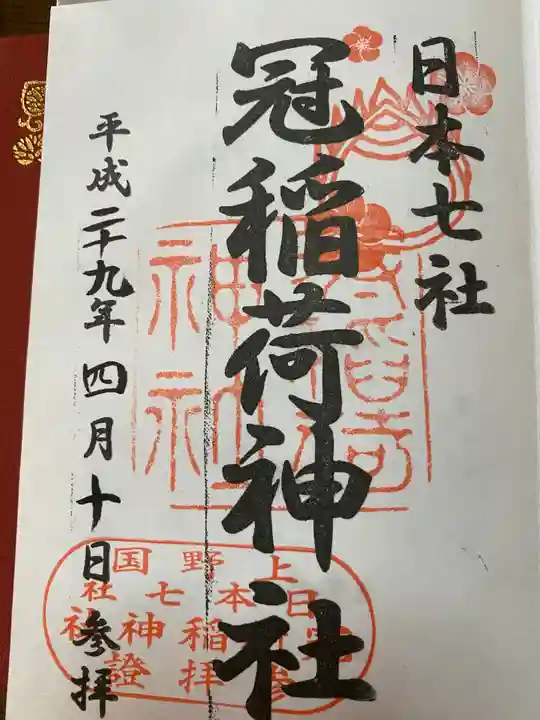 日本七社
冠稲荷神社
平成二十九年四月十日参拝
上野国
日本七社
稲神社
参拝證